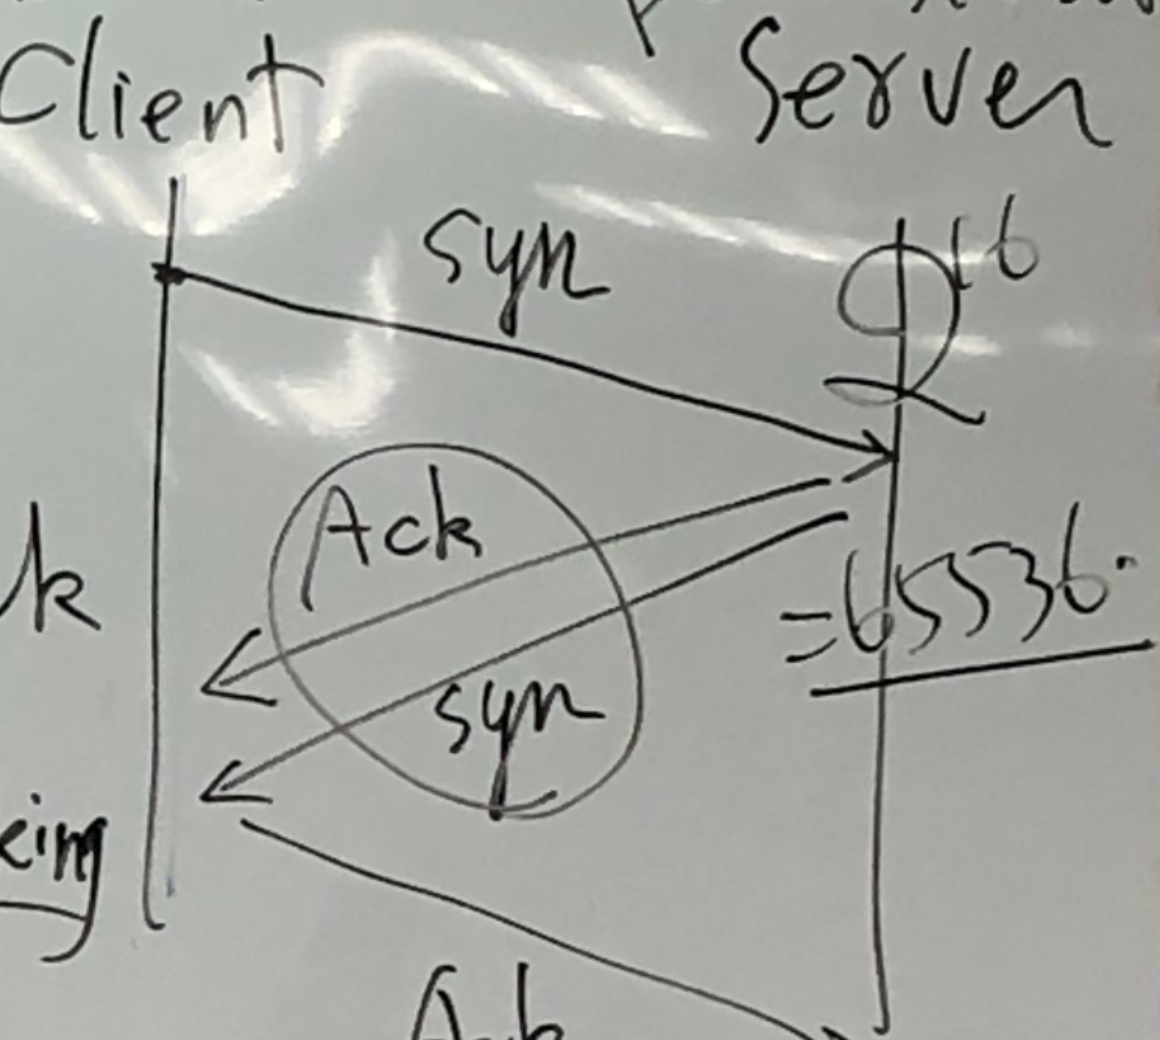 Client
Server
syn
2^16
Ack
=65536.
syn
Ack